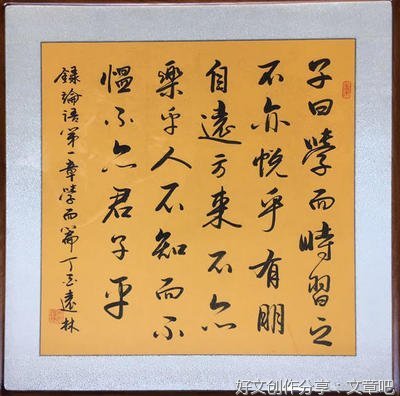 子曰學而時習之
不亦悅乎有朋
自遠方來不亦
樂乎人不知而不
愠不亦君子乎
錄論語第一章學而篇丁酉遠林
好文创作分享：文章吧